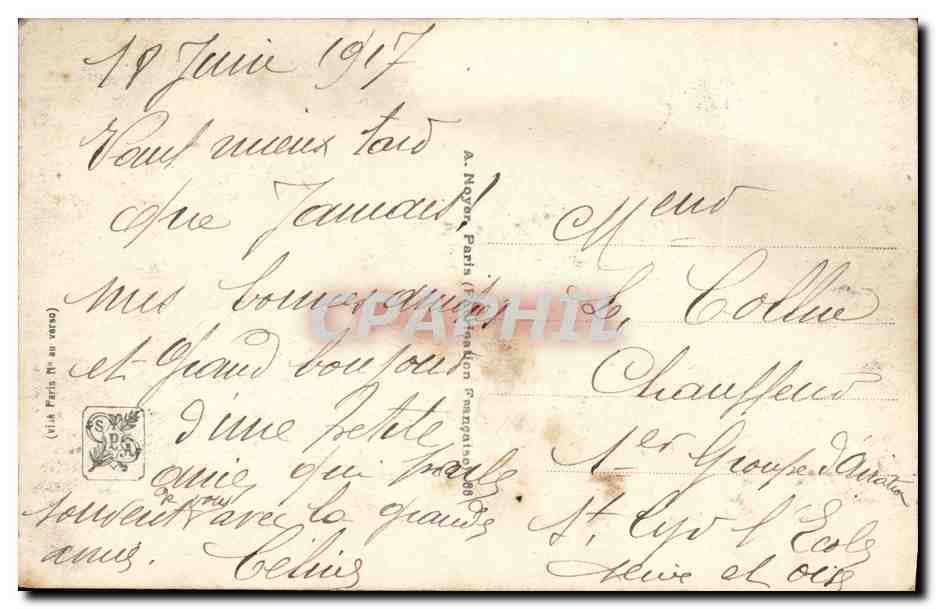 18 Juin 1917
Vaut mieux tard
que Jamais!
mes bonnes amitiés
et Grand bonjour
d'une petite
amie qui parle
souvent de vous avec la grande
amie. Céline
Meur
Le Collue
Chauffeur
1er Groupe d'aviation
St Cyr l'Ecole
Seine et Oise
A. Noyer, Paris (Fabrication Française)
(visé Paris No au verso)
CPAPHIL